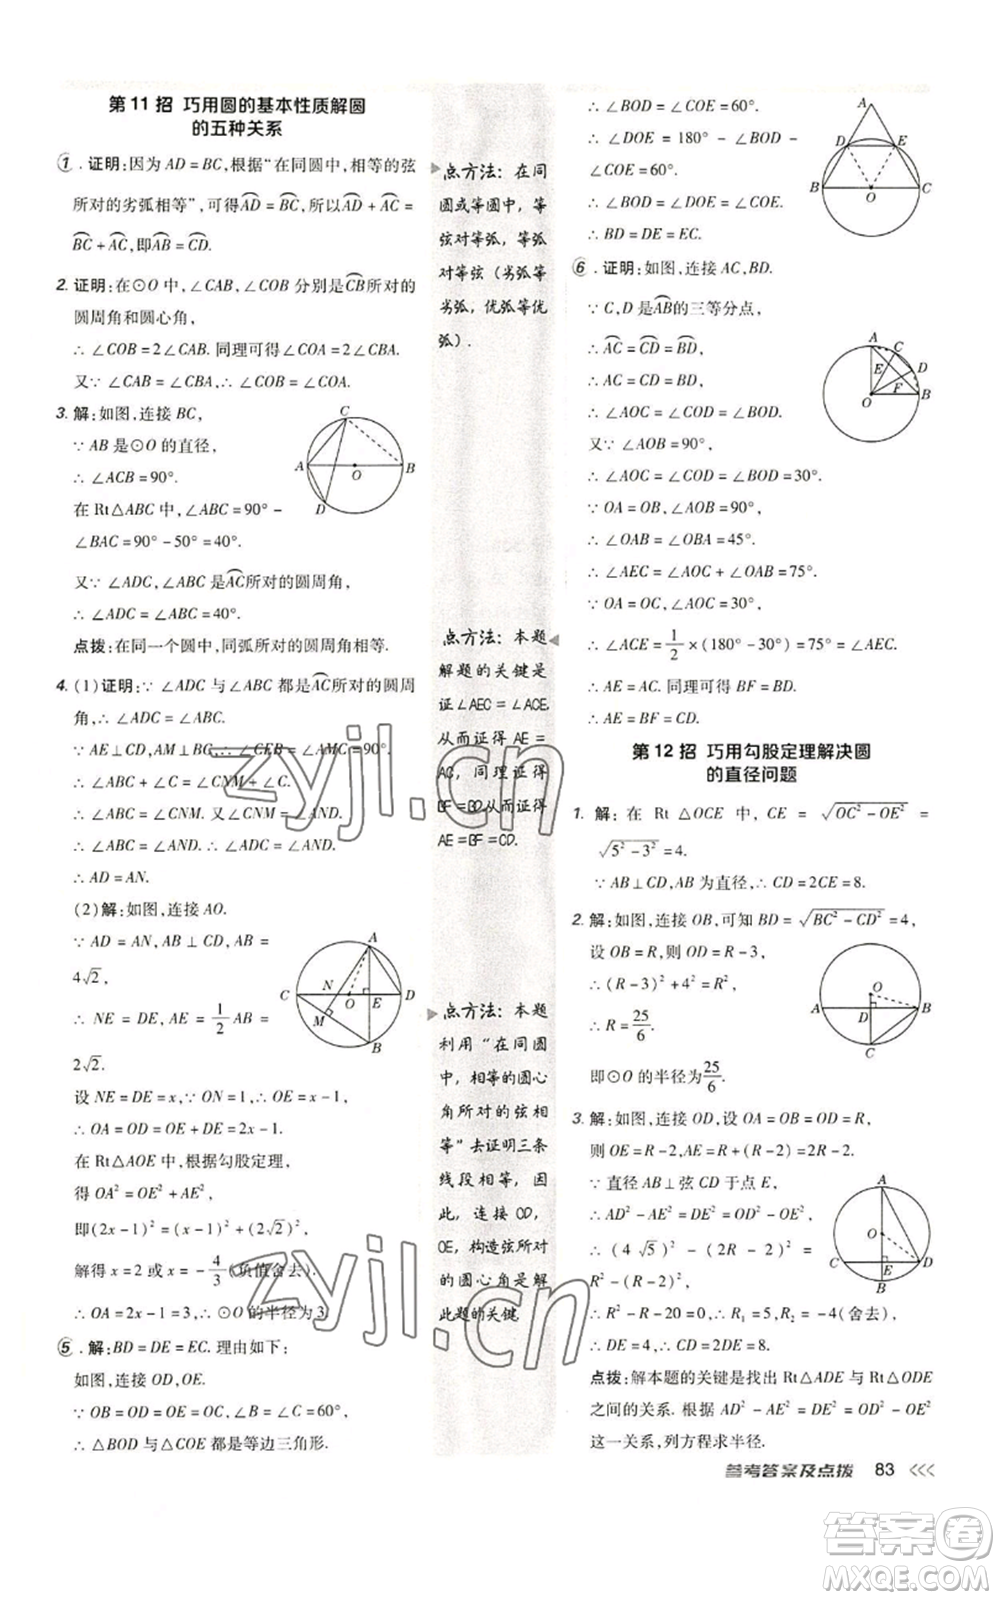 第11招 巧用圆的基本性质解圆
的五种关系
1. 证明:因为 AD=BC,根据“在同圆中,相等的弦
所对的劣弧相等”,可得⌒AD=⌒BC,所以⌒AD+⌒AC=
⌒BC+⌒AC,即⌒AB=⌒CD.
2. 证明:在⊙O 中,∠CAB,∠COB 分别是⌒CB所对的
圆周角和圆心角,
∴ ∠COB=2∠CAB. 同理可得∠COA=2∠CAB.
又∵ ∠CAB=∠CAB,∴ ∠COB=∠COA.
3. 解:如图,连接 BC,
∵ AB 是⊙O 的直径,
∴ ∠ACB=90°.
在 Rt△ABC 中,∠ABC=90°-
∠BAC=90°-50°=40°.
又∵ ∠ADC,∠ABC 是⌒AC所对的圆周角,
∴ ∠ADC=∠ABC=40°.
点拨:在同一个圆中,同弧所对的圆周角相等.
C
A
O
B
D
4. (1)证明:∵ ∠ADC 与∠ABC 都是⌒AC所对的圆周
角,∴ ∠ADC=∠ABC.
∵ AE⊥CD,AM⊥BC,∴ ∠CEB=∠CMA=90°.
∴ ∠ABC+∠BCE=∠CNM+∠BCE.
∴ ∠ABC=∠CNM=∠AND.
∴ ∠ADC=∠ABC=∠AND.
∴ AD=AN.
(2)解:如图,连接 AO.
∵ AD=AN,AB⊥CD,AB=
4√2,
∴ NE=DE,AE=1/2 AB=
2√2.
设 NE=DE=x,∵ ON=1,∴ OE=x-1,
∴ OA=OD=OE+DE=2x-1.
在 Rt△AOE 中,根据勾股定理,
得 OA²=OE²+AE²,
即(2x-1)²=(x-1)²+(2√2)².
解得 x=2 或 x=-4/3(负值舍去).
∴ OA=2x-1=3,∴ ⊙O 的半径为 3.
A
N
C
O
E
D
M
B
5. 解:BD=DE=EC. 理由如下:
如图,连接 OD,OE.
∵ OB=OD=OE=OC,∠B=∠C=60°,
∴ △BOD 与△COE 都是等边三角形.
点方法:在同
圆或等圆中,等
弦对等弧,等弧
对等弦(劣弧等
劣弧,优弧等优
弧).
点方法:本题
解题的关键是
证∠AEC=∠ACE,
从而证得 AE=
AC,同理证得
BF=BD,从而证得
AE=BF=CD.
点方法:本题
利用“在同圆
中,相等的圆心
角所对的弦相
等”去证明三条
线段相等,因
此,连接 OD,
OE,构造弦所对
的圆心角是解
此题的关键.
∴ ∠BOD=∠COE=60°.
∴ ∠DOE=180°-∠BOD-
∠COE=60°.
∴ ∠BOD=∠DOE=∠COE.
∴ BD=DE=EC.
A
D
E
B
O
C
6. 证明:如图,连接 AC,BD.
∵ C,D 是⌒AB的三等分点,
∴ ⌒AC=⌒CD=⌒BD,
∴ AC=CD=BD,
∴ ∠AOC=∠COD=∠BOD.
又∵ ∠AOB=90°,
∴ ∠AOC=∠COD=∠BOD=30°.
∵ OA=OB,∠AOB=90°,
∴ ∠OAB=45°.
∴ ∠AEC=∠AOC+∠OAB=75°.
∵ OA=OC,∠AOC=30°,
∴ ∠ACE=1/2×(180°-30°)=75°=∠AEC.
∴ AE=AC. 同理可得 BF=BD.
∴ AE=BF=CD.
A
C
E
D
F
O
B
第12招 巧用勾股定理解决圆
的直径问题
1. 解:在 Rt△OCE 中,CE=√(OC²-OE²)=
√(5²-3²)=4.
∵ AB⊥CD,AB 为直径,∴ CD=2CE=8.
2. 解:如图,连接 OB,可知 BD=√(BC²-CD²)=4,
设 OB=R,则 OD=R-3,
∴ (R-3)²+4²=R²,
∴ R=25/6.
即⊙O 的半径为25/6.
O
A
D
B
C
3. 解:如图,连接 OD,设 OA=OB=OD=R,
则 OE=R-2,AE=R+(R-2)=2R-2.
∵ 直径 AB⊥弦 CD 于点 E,
∴ AD²-AE²=OD²-OE²,
∴ (4√5)²-(2R-2)²=
R²-(R-2)².
∴ R²-R-20=0,∴ R₁=5,R₂=-4(舍去).
∴ DE=4,∴ CD=2DE=8.
点拨:解本题的关键是找出 Rt△ADE 与 Rt△ODE
之间的关系. 根据 AD²-AE²=DE²=OD²-OE²
这一关系,列方程求半径.
A
O
C
E
D
B
参考答案及点拨 83
zyjl.cn
zyjl.cn
答案卷
MXQE.COM